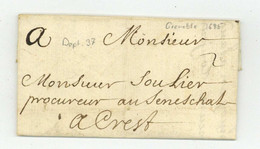 Grenoble 1695
a Monsieur
Dept. 37
2
Monsieur Soulier
procureur au Seneschal
a Crest